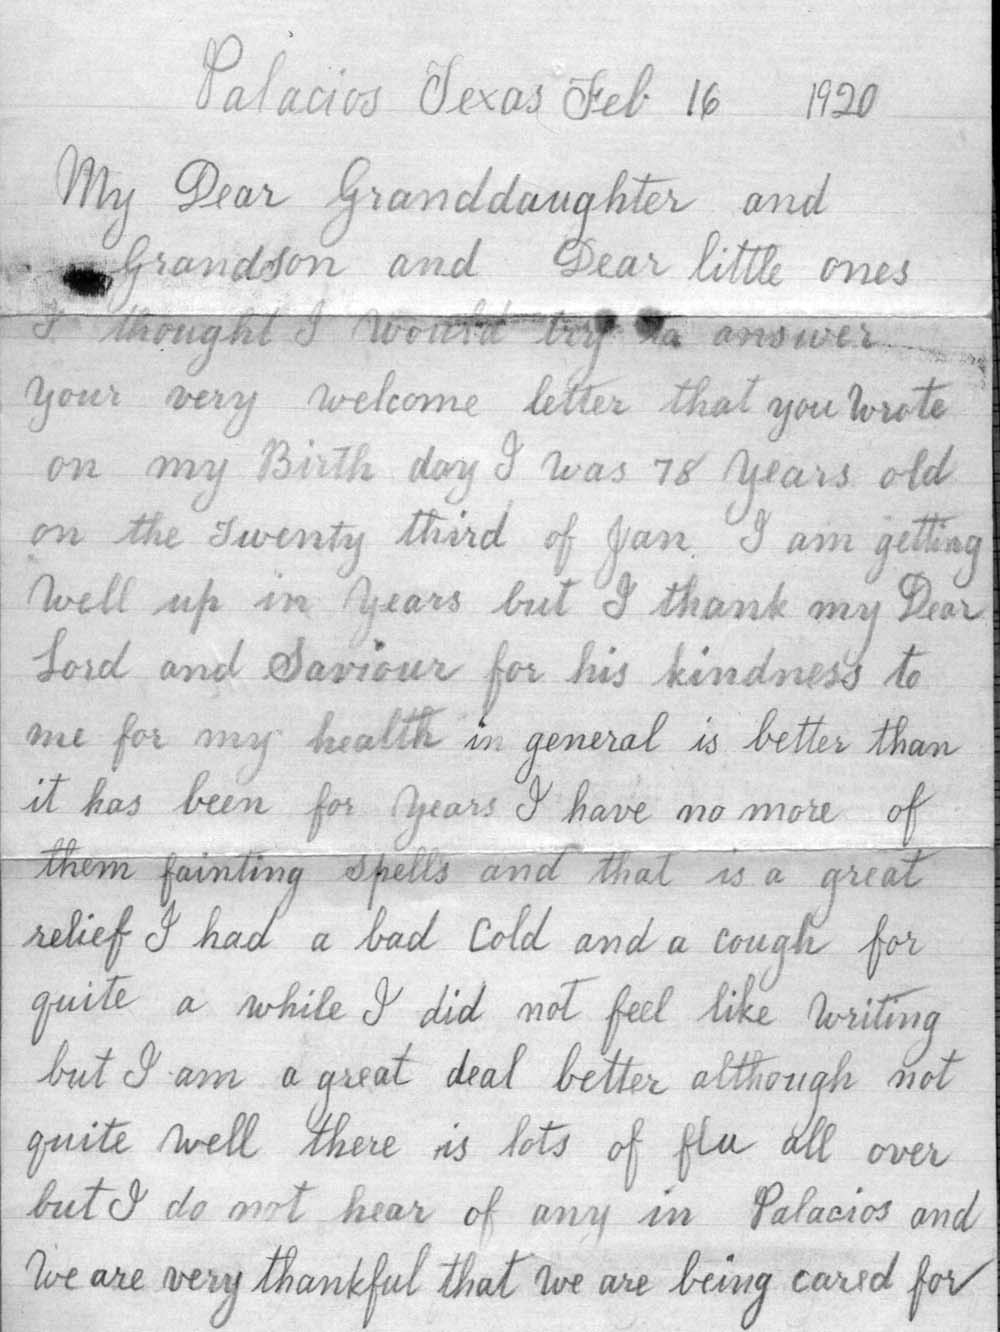 Palacios Texas Feb 16 1920
My Dear Granddaughter and
Grandson and Dear little ones
I thought I would try to answer
your very welcome letter that you wrote
on my Birth day I was 78 years old
on the Twenty third of Jan. I am getting
well up in years but I thank my Dear
Lord and Saviour for his kindness to
me for my health in general is better than
it has been for years I have no more of
them fainting spells and that is a great
relief I had a bad cold and a cough for
quite a while I did not feel like writing
but I am a great deal better although not
quite well there is lots of flu all over
but I do not hear of any in Palacios and
we are very thankful that we are being cared for